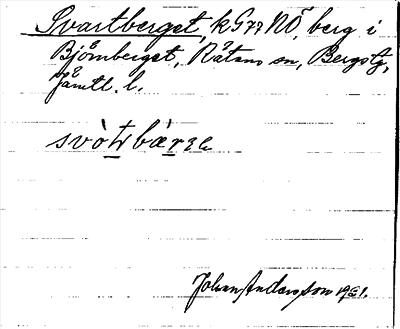 Svartberget, k G 77 NÖ, berg i
Björnberget, Rätans sn, Bergs tg,
Jämtl. l.
svòtbær
Johan Andersson 1921.